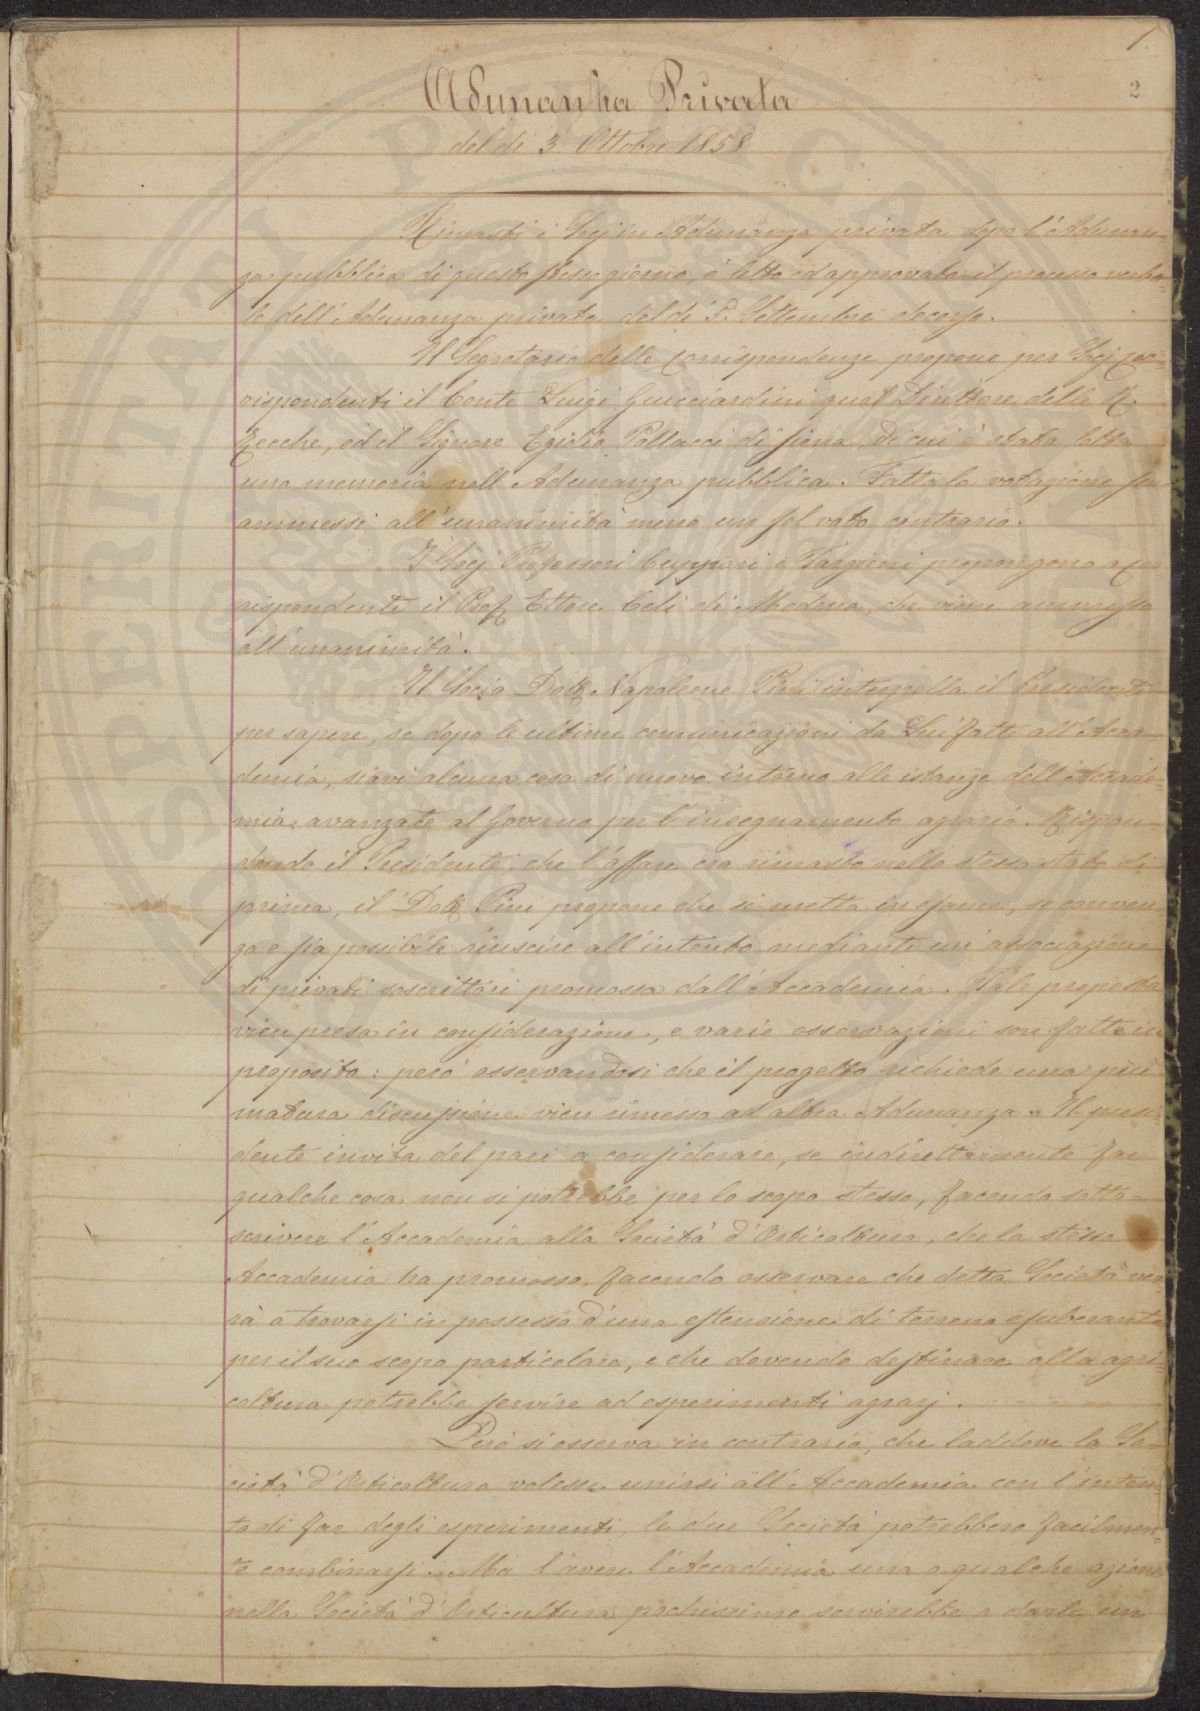 1.
2
Adunanza Privata
del dì 3 Ottobre 1858
Rimasti i Socj in Adunanza privata dopo l'Adunan-
za pubblica di questo stesso giorno, è letto ed approvato il processo verba-
le dell'Adunanza privata del dì 5. Settembre decorso.
Il Segretario delle corrispondenze propone per Socj Cor-
rispondenti il Conte Luigi Guicciardini qual Direttore delle R.
Zecche, ed il Signore Egidio Pollacci di Siena, di cui è stata letta
una memoria nell'Adunanza pubblica. Fatta la votazione son
ammessi all'unanimità meno un sol voto contrario.
I Socj Professori Cuppari e Targioni propongono a Cor-
rispondente il Prof. Ettore Celi di Modena, che viene ammesso
all'unanimità.
Il Socio Dott. Napoleone Pini interpella il Presidente
per sapere, se dopo le ultime comunicazioni da Lui fatte all'Acca-
demia, siavi alcuna cosa di nuovo intorno alle istanze dell'Accade-
mia avanzate al Governo per l'insegnamento agrario. Rispon-
dendo il Presidente, che l'affare era rimasto nello stesso stato di
prima, il Dott. Pini propone che si metta in esame, se conven-
ga e sia possibile riuscire all'intento mediante un'associazione
di privati soscrittori promossa dall'Accademia. Tale proposta
vien presa in considerazione, e varie osservazioni son fatte in
proposito: però osservandosi che il progetto richiede una più
matura discussione vien rimesso ad altra Adunanza. Il presi-
dente invita del pari a considerare, se indirettamente far
qualche cosa non si potrebbe per lo scopo stesso, facendo sotto-
scrivere l'Accademia alla Società d'Orticoltura, che la stessa
Accademia ha promosso, facendo osservare che detta Società ver-
rà a trovarsi in possesso d'una estensione di terreno esuberante
per il suo scopo particolare, e che dovendo destinare alla agri-
coltura potrebbe servire ad esperimenti agrarj.
Però si osserva in contrario, che laddove la So-
cietà d'Orticoltura volesse unirsi all'Accademia con l'inten-
to di far degli esperimenti, le due Società potrebbero facilmen-
te combinarsi. Ma l'avere l'Accademia una o qualche azione
nella Società d'Orticultura pochissimo servirebbe a darle un